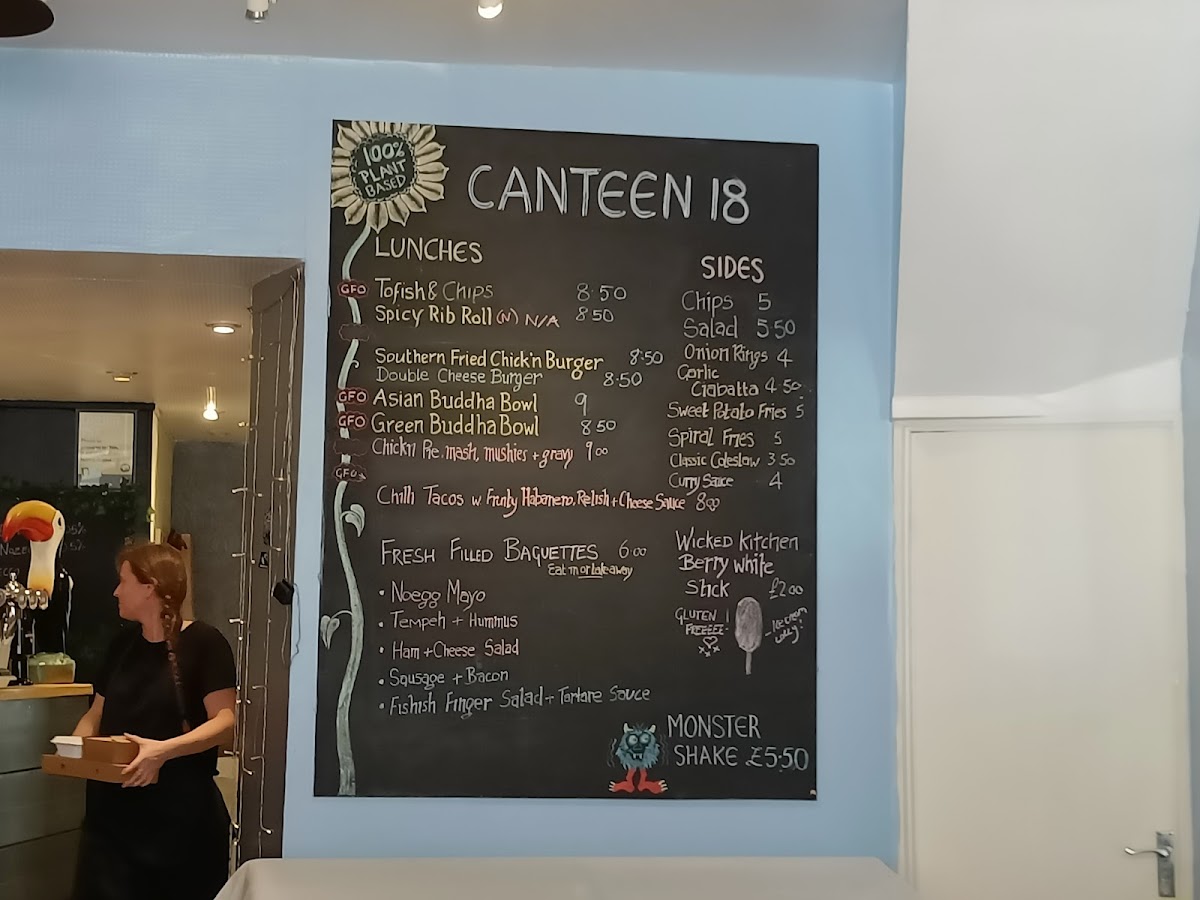 100%
PLANT
BASED
CANTEEN 18
LUNCHES
GFO Tofish & Chips 8.50
Spicy Rib Roll (N) N/A 8.50
Southern Fried Chick'n Burger 8.50
Double Cheese Burger 8.50
GFO Asian Buddha Bowl 9
GFO Green Buddha Bowl 8.50
Chick'n Pie, mash, mushies + gravy 9.00
GFO
Chilli Tacos w Fruity Habanero, Relish + Cheese Sauce 8.00
FRESH FILLED BAGUETTES 6.00
Eat in or takeaway
• Noegg Mayo
• Tempeh + Hummus
• Ham + Cheese Salad
• Sausage + Bacon
• Fishish Finger Salad + Tartare Sauce
SIDES
Chips 5
Salad 5.50
Onion Rings 4
Garlic
Ciabatta 4.50
Sweet Potato Fries 5
Spiral Fries 5
Classic Coleslaw 3.50
Curry Sauce 4
WICKED KITCHEN
Berry white
Stick £2.00
GLUTEN
FREEEEE!
- Ice cream
lolly!
MONSTER
SHAKE £5.50